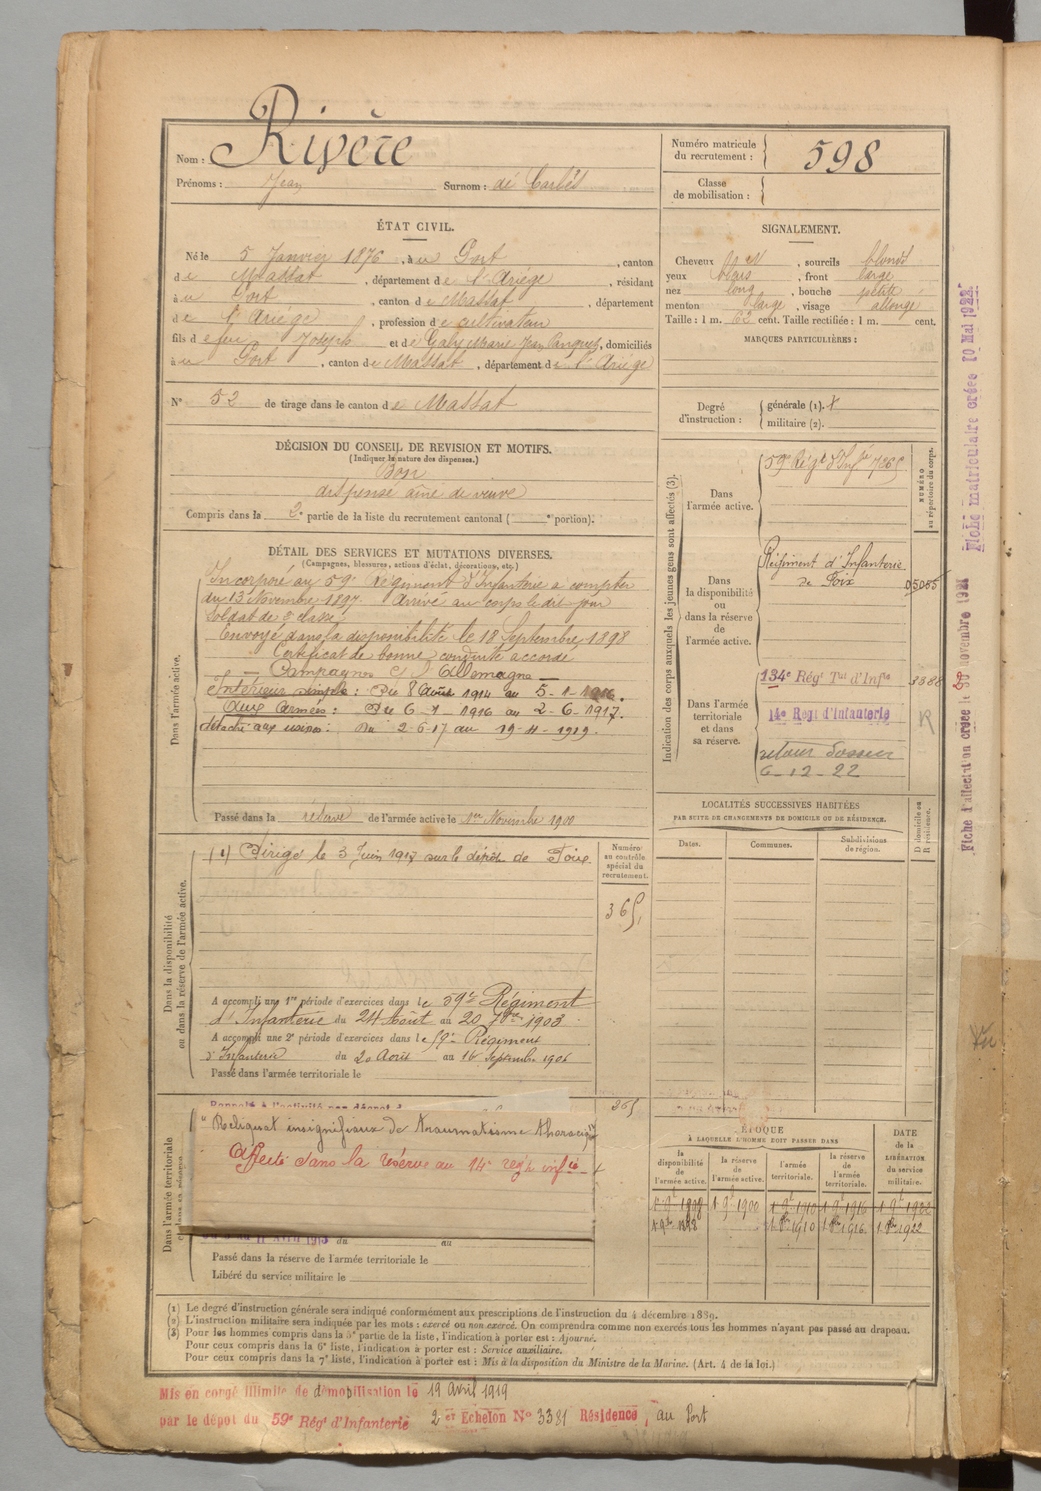 Nom : Rivère
Prénoms : Jean Surnom : dé Carbès
Numéro matricule du recrutement : 598
Classe de mobilisation :
ÉTAT CIVIL.
Né le 5 Janvier 1876, à u Port, canton
d e Massat, département d e l'Ariège, résidant
à u Port, canton d e Massat, département
d e l'Ariège, profession d e cultivateur
fils d e feu Joseph et d e Galy Marie Jeanne, domiciliés
à u Port, canton d e Massat, département d e l'Ariège
N° 52 de tirage dans le canton d e Massat
SIGNALEMENT.
Cheveux , sourcils blonds
yeux bleus, front large
nez long, bouche petite
menton large, visage allongé
Taille : 1 m. 62 cent. Taille rectifiée : 1 m. cent.
MARQUES PARTICULIÈRES :
Degré d'instruction :
générale (1). 
militaire (2).
DÉCISION DU CONSEIL DE REVISION ET MOTIFS.
(Indiquer la nature des dispenses.)
Bon
dispensé aîné de veuve
Compris dans la 2e partie de la liste du recrutement cantonal ( e portion).
DÉTAIL DES SERVICES ET MUTATIONS DIVERSES.
(Campagnes, blessures, actions d'éclat, décorations, etc.)
Dans l'armée active.
Incorporé au 59e Régiment d'Infanterie à compter
du 13 Novembre 1897. Arrivé au corps le dit jour
soldat de 2e classe.
Envoyé dans la disponibilité le 18 Septembre 1898
Certificat de bonne conduite accordé
Campagne c/ l'Allemagne
Intérieur simple : Du 8 Août 1914 au 5-1-1916.
Aux Armées : Du 6-1-1916 au 2-6-1917.
détaché aux usines : Du 2-6-17 au 19-4-1919.
Passé dans la réserve de l'armée active le 1er Novembre 1900
Indication des corps auxquels les jeunes gens sont affectés (3).
NUMÉRO au répertoire du corps.
Dans l'armée active.
59e Régt d'Infie 7865
Dans la disponibilité ou dans la réserve de l'armée active.
Régiment d'Infanterie
de Foix
D5055
Dans l'armée territoriale et dans sa réserve.
134e Régt Tal d'Infie 3388
14e Regt d'Infanterie R
retour Dossier
6-12-22
LOCALITÉS SUCCESSIVES HABITÉES
PAR SUITE DE CHANGEMENTS DE DOMICILE OU DE RÉSIDENCE.
Dates. Communes. Subdivisions de région. D domicile ou R résidence.
Dans la disponibilité ou dans la réserve de l'armée active.
(1) Dirigé le 3 Juin 1917 sur le dépôt de Foix
Numéro au contrôle spécial du recrutement.
365
A accompli une 1re période d'exercices dans le 59e Régiment
d'Infanterie du 24 Août au 20 7bre 1903
A accompli une 2e période d'exercices dans le 59e Régiment
d'Infanterie du 20 Août au 16 Septembre 1906
Passé dans l'armée territoriale le
365
Dans l'armée territoriale
"Reliquat insignifiant de traumatisme thoracique"
Affecté dans la réserve au 14e regt infie
11 Avril 1913 du au
Passé dans la réserve de l'armée territoriale le
Libéré du service militaire le
ÉPOQUE
À LAQUELLE L'HOMME DOIT PASSER DANS
la disponibilité de l'armée active. la réserve de l'armée active. l'armée territoriale. la réserve de l'armée territoriale.
DATE de la LIBÉRATION du service militaire.
1.9bre 1900 1.9bre 1910 1.9bre 1916 1.9bre 1922
1.9bre 1898 1.9bre 1910 1.9bre 1916 1.9bre 1922
(1) Le degré d'instruction générale sera indiqué conformément aux prescriptions de l'instruction du 4 décembre 1889.
(2) L'instruction militaire sera indiquée par les mots : exercé ou non exercé. On comprendra comme non exercés tous les hommes n'ayant pas passé au drapeau.
(3) Pour les hommes compris dans la 5e partie de la liste, l'indication à porter est : Ajourné.
Pour ceux compris dans la 6e liste, l'indication à porter est : Service auxiliaire.
Pour ceux compris dans la 7e liste, l'indication à porter est : Mis à la disposition du Ministre de la Marine. (Art. 4 de la loi.)
Mis en congé illimité de démobilisation le 19 Avril 1919
par le dépôt du 59e Régt d'Infanterie 2 er Echelon No 3381 Résidence, au Port
Fiche matriculaire créée 10 Mai 1922
Fiche d'affectation créée le novembre 1921
Vu